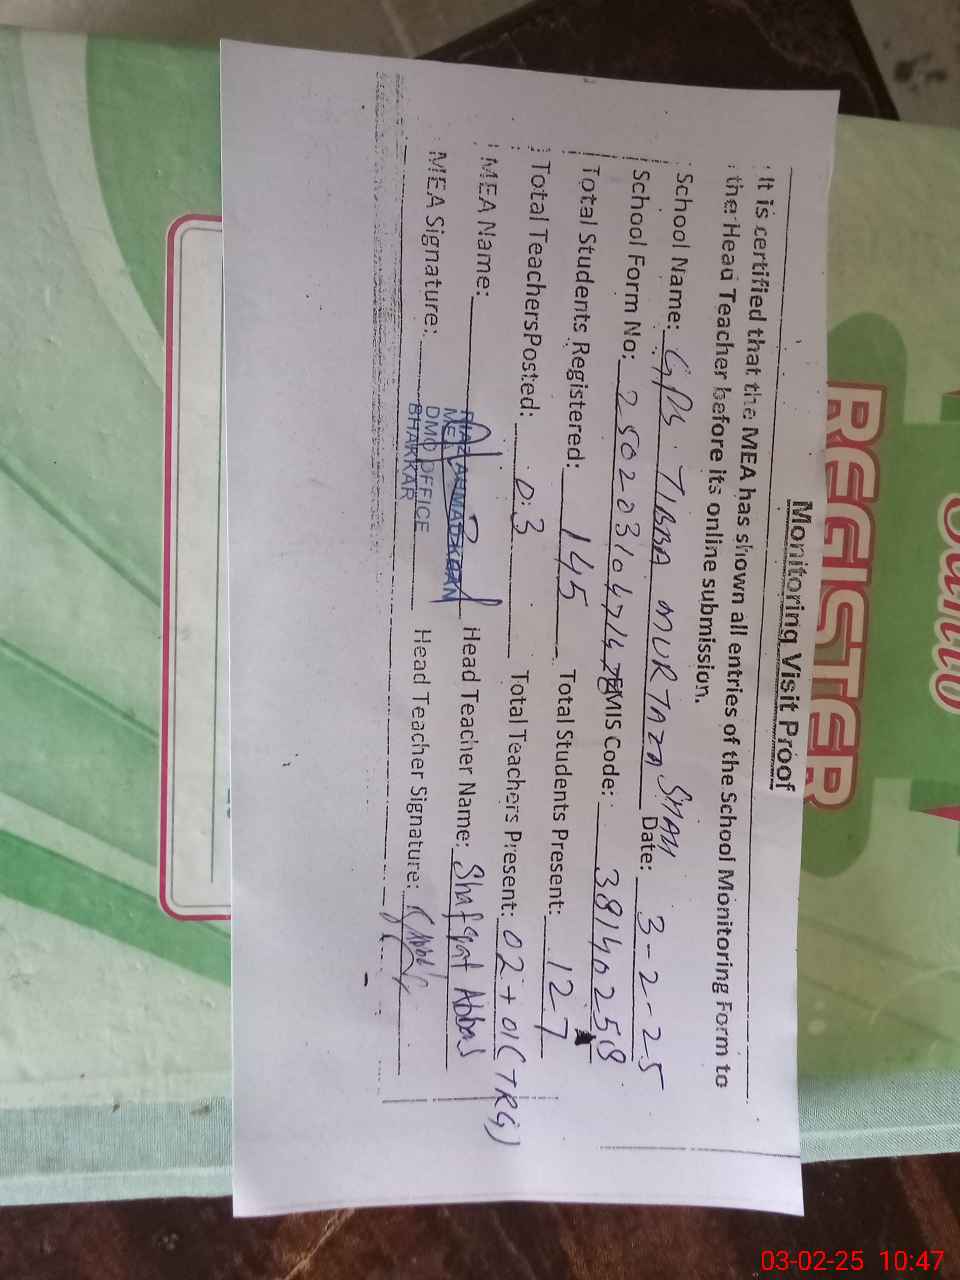 REGISTER
Monitoring Visit Proof
It is certified that the MEA has shown all entries of the School Monitoring Form to
the Head Teacher before its online submission.
School Name: GPS TIBBA MURTAZA SHAH Date: 3-2-25
School Form No: EMIS Code: 38140258
Total Students Registered: 145 Total Students Present: 127
Total TeachersPosted: 03 Total Teachers Present: 02+01(TRG)
MEA Name: Head Teacher Name: Shafqat Abbas
MEA Signature: Head Teacher Signature:
MEA
DMO OFFICE
BHAKKAR
03-02-25 10:47